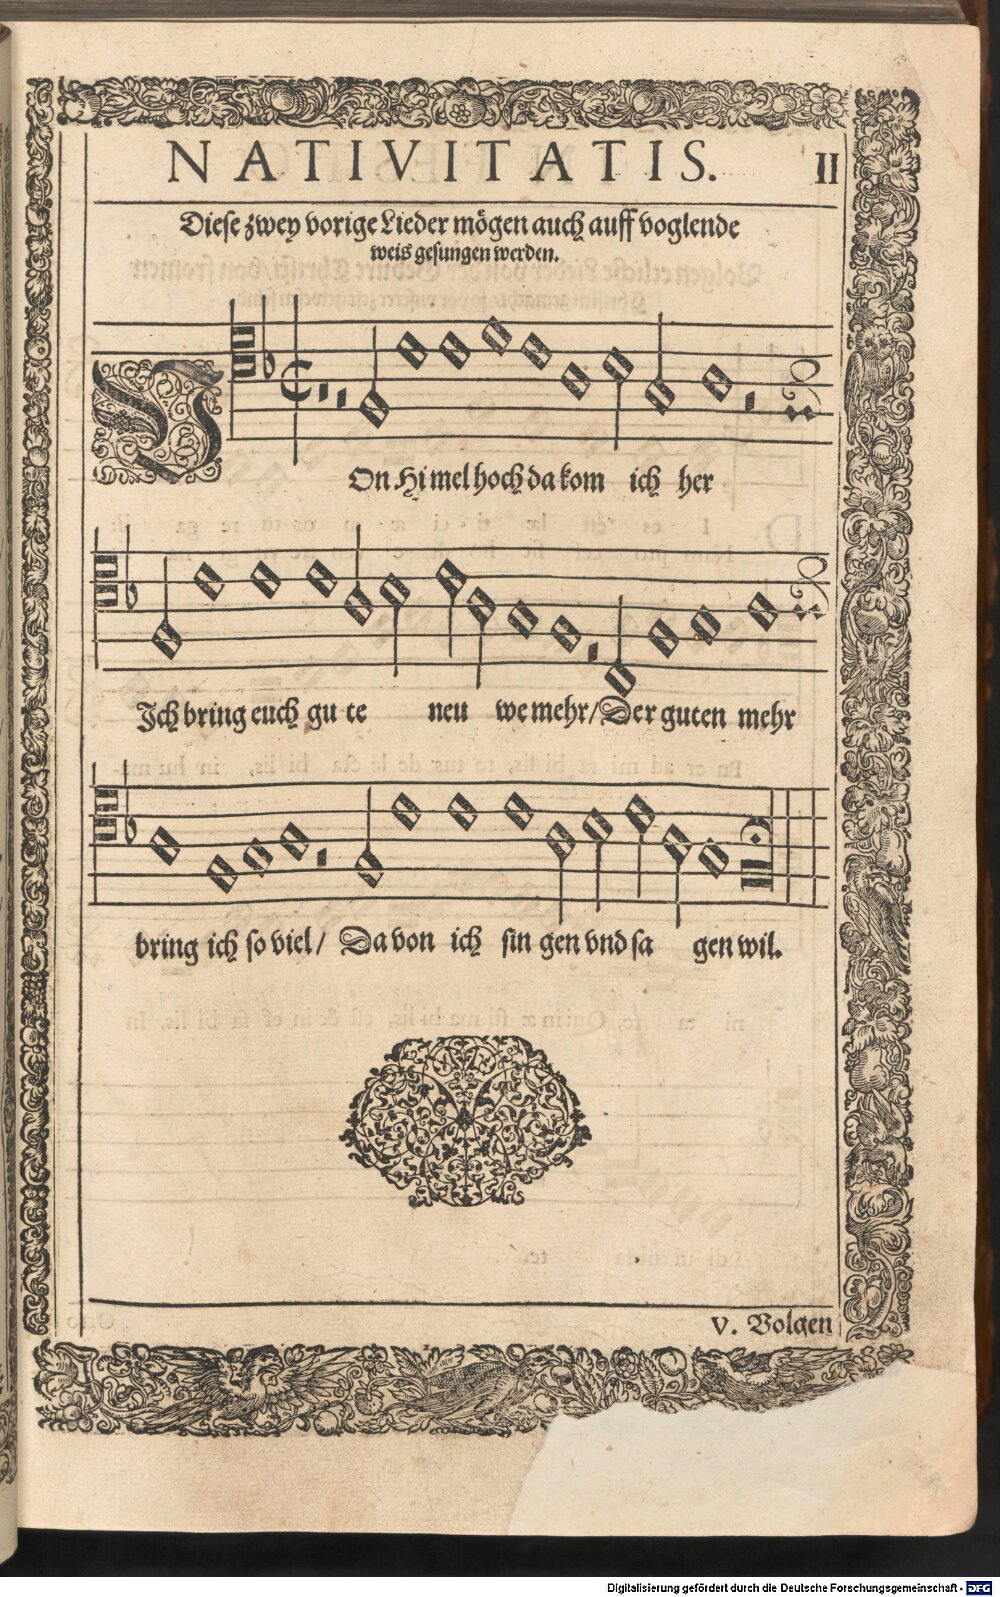 NATIVITATIS. II
Diese zwey vorige Lieder mögen auch auff voglende
weis gesungen werden.
VOn Himel hoch da kom ich her
Ich bring euch gu te neu we mehr/ Der guten mehr
bring ich so viel/ Da von ich sin gen vnd sa gen wil.
v. Volgen
Digitalisierung gefördert durch die Deutsche Forschungsgemeinschaft - DFG